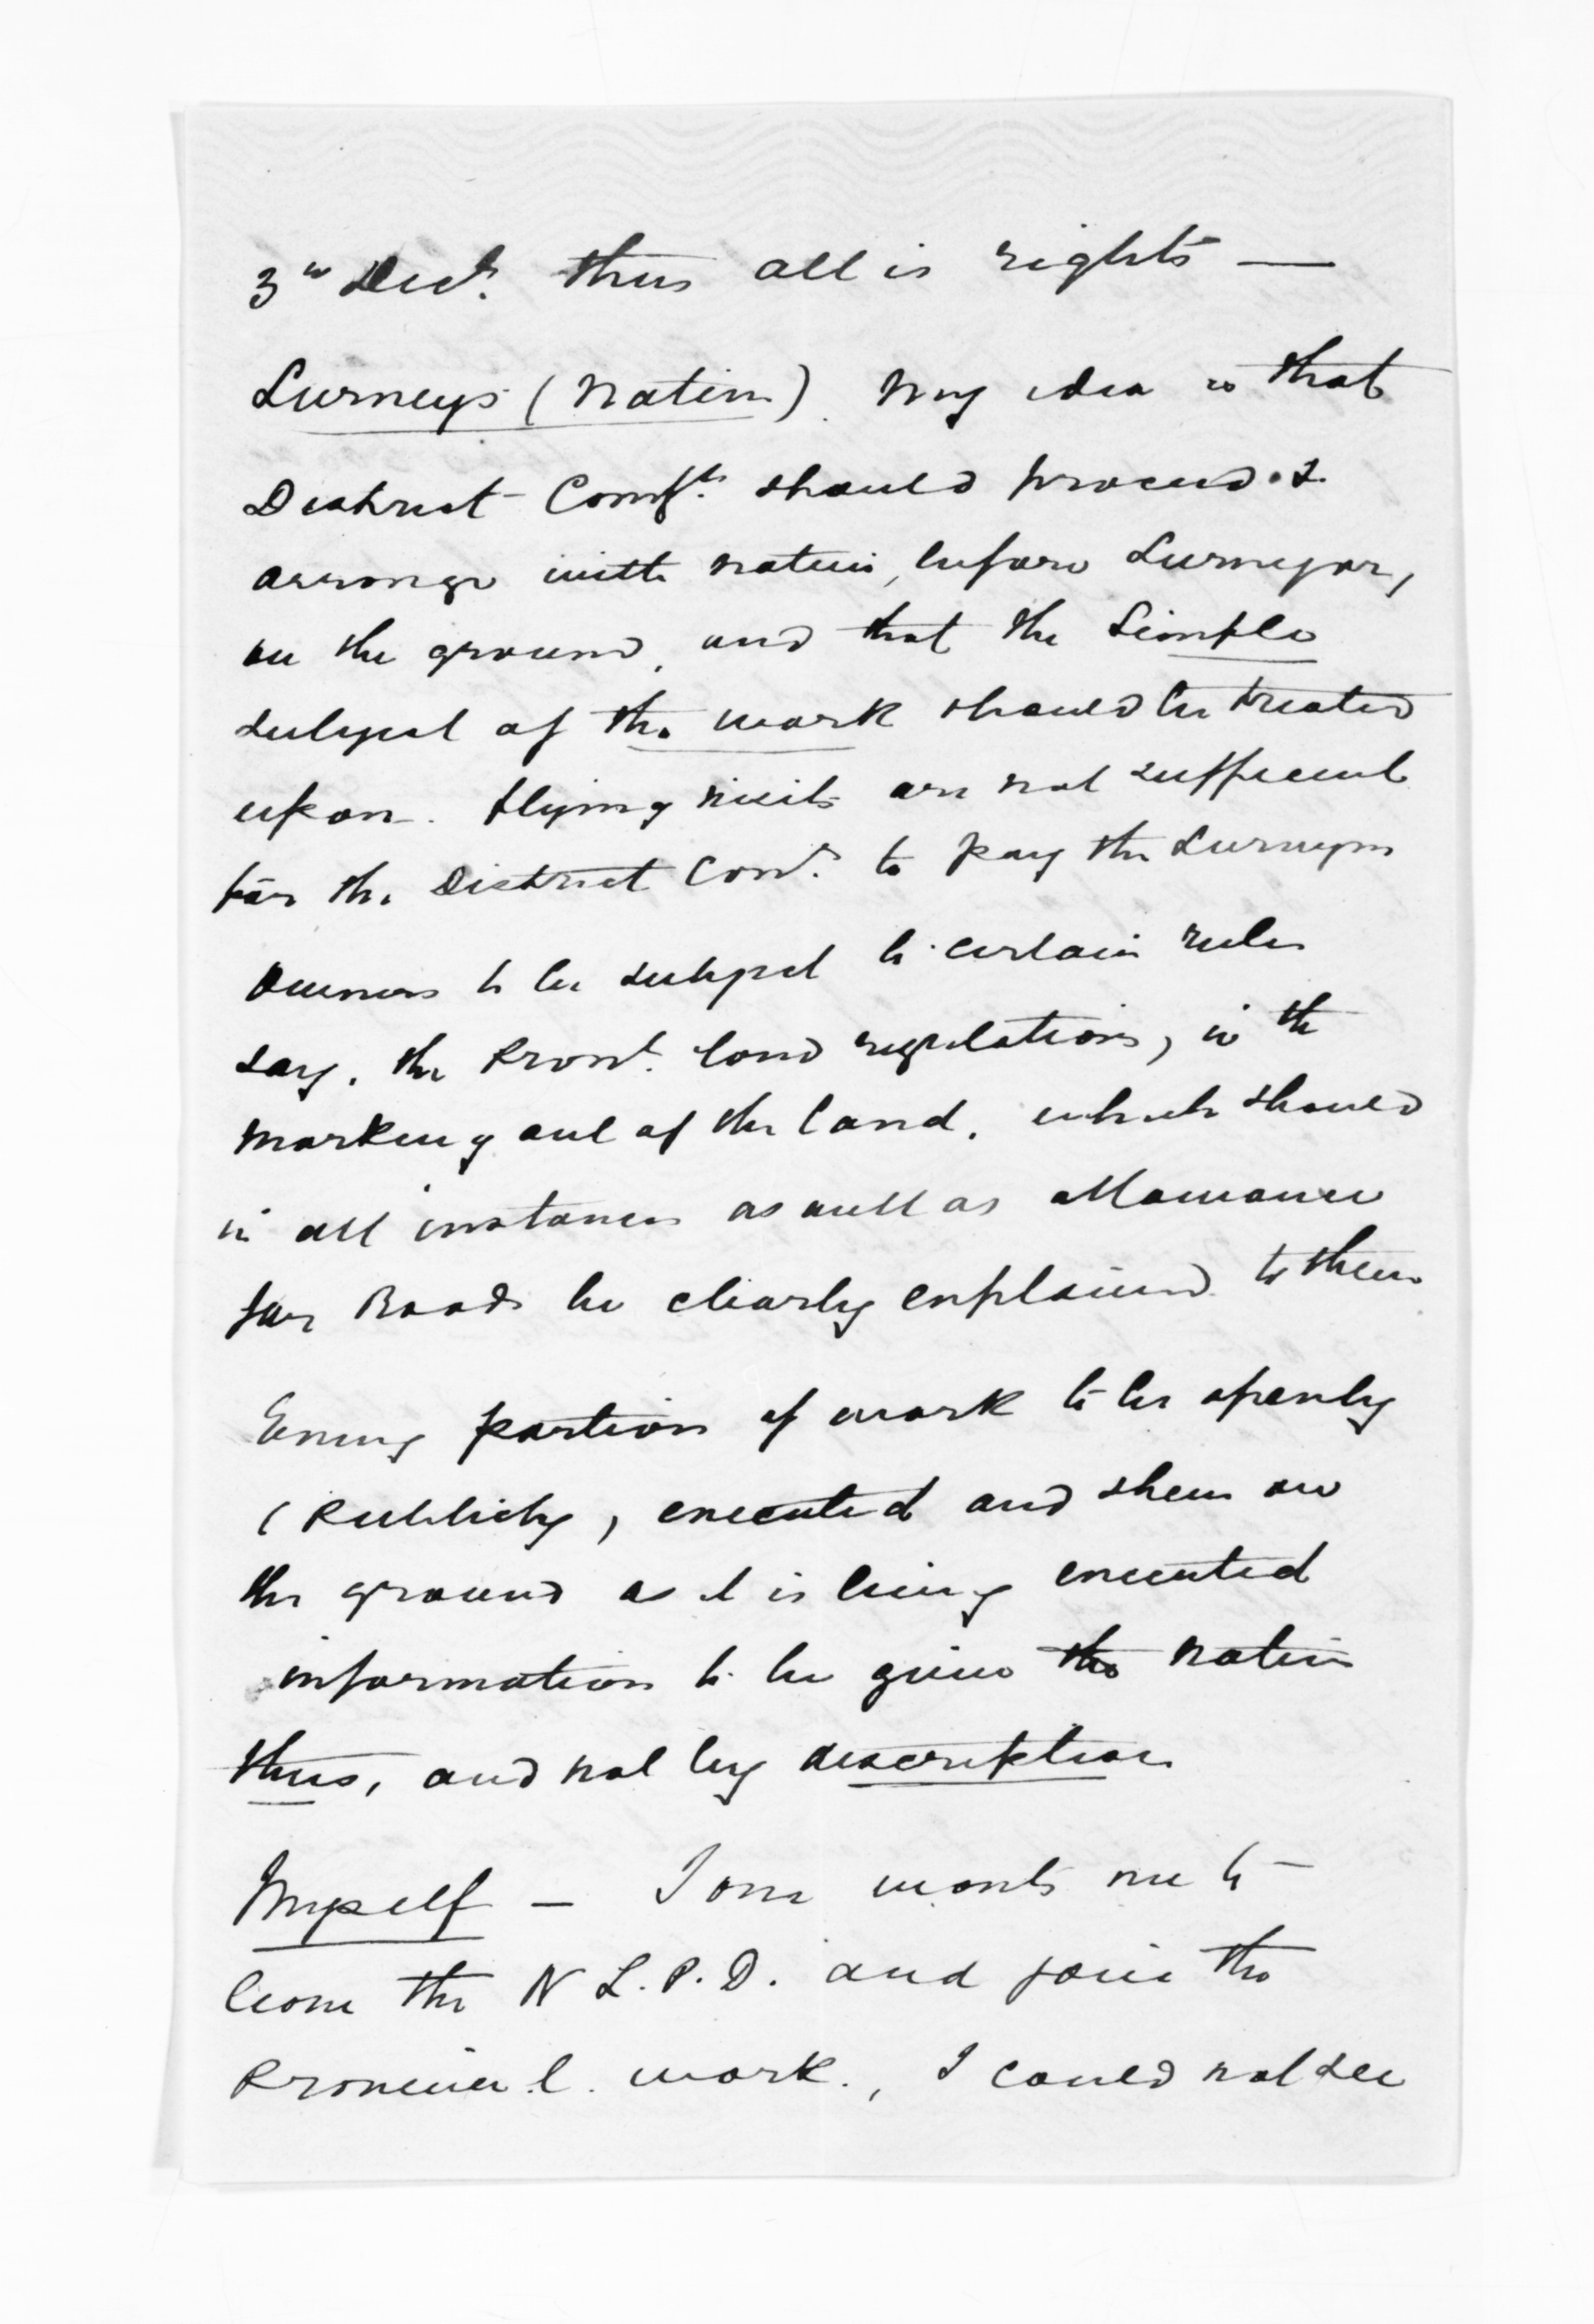 3rd Decr. thus all is right —
Surveys (Native). My idea is that
District Comrs. should proceed &
arrange with natives, before Surveyor,
on the ground, and that the simple
subject of the work should be treated
upon. Flying visits are not sufficient
for the District Comr. to pay the Surveyor
Owners to be subject to certain rules
say, the Provl. land regulations, in the
marking out of the land, which should
in all instances as well as allowance
for Roads be clearly explained to them
Every portion of work to be openly
(Publicly) executed and shewn on
the ground as it is being executed
information to be given the natives
thus, and not by description
Myself — wants me to
leave the N L. P. D. and join the
Provincial. work., I could not see